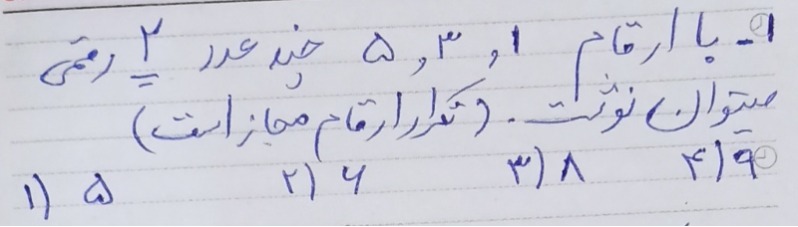 ۱- با ارقام ۱ و ۳ و ۵ چند عدد ۲ رقمی
میتوان نوشت. (تکرار ارقام مجاز است)
۱) ۵ ۲) ۶ ۳) ۸ ۴) ۹